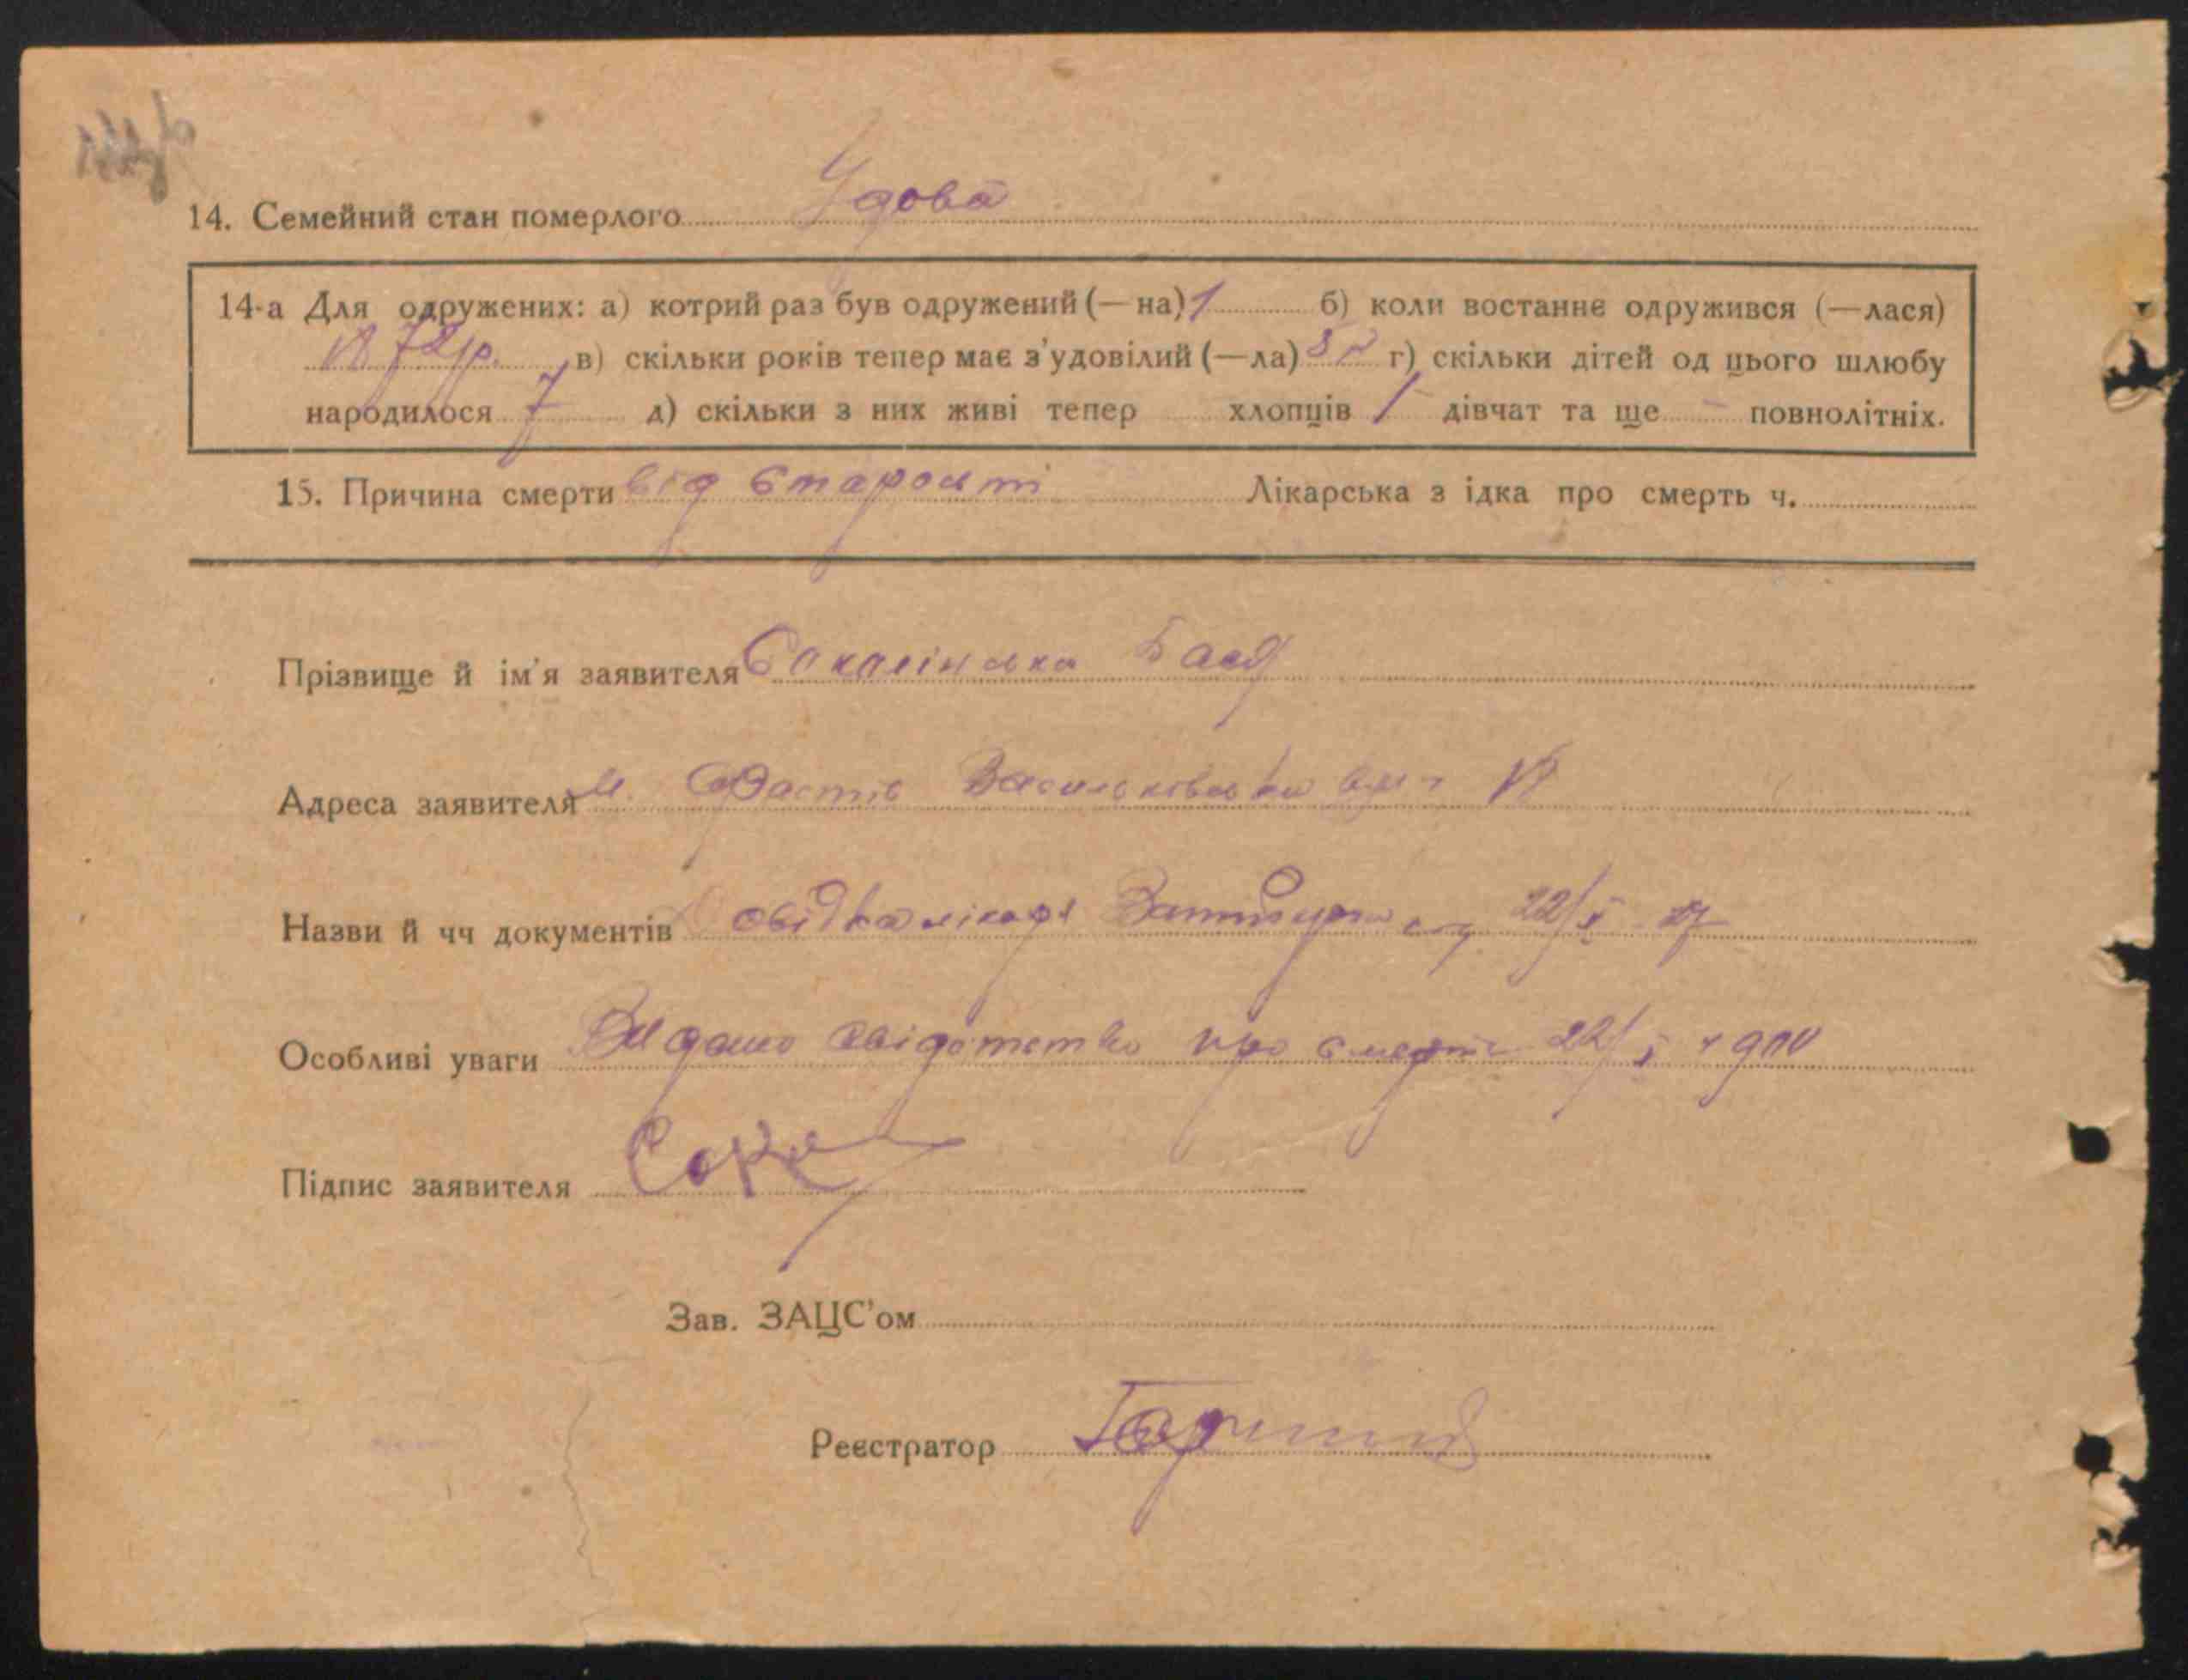 14. Семейний стан померлого Удова
14-а Для одружених: а) котрий раз був одружений (—на) 1 б) коли востаннє одружився (—лася)
1872р. в) скільки років тепер має з'удовілий (—ла) г) скільки дітей од цього шлюбу
народилося 7 д) скільки з них живі тепер хлопців 1 дівчат та ще - повнолітніх.
15. Причина смерти від старости Лікарська з ідка про смерть ч.
Прізвище й ім'я заявителя Сокалінська Бася
Адреса заявителя м. Фастів Васильківська
Назви й чч документів свідка лікаря від 22/X 27
Особливі уваги Видано свідотство про смерть 22/X
Підпис заявителя Сока
Зав. ЗАЦС'ом
Реєстратор